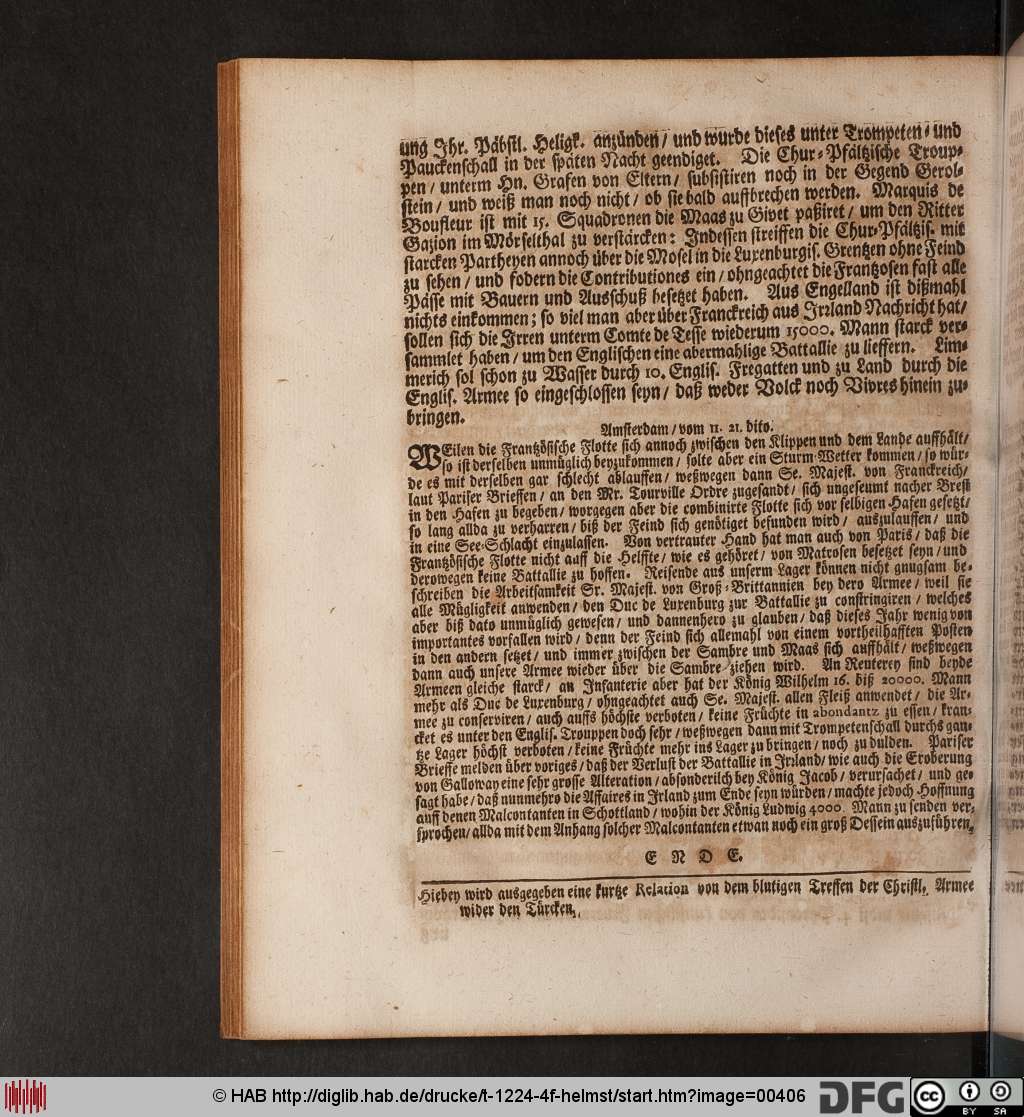 ung Ihr. Päbstl. Heligk. anzünden / und wurde dieses unter Trompeten- und
Pauckenschall in der späten Nacht geendiget. Die Chur-Pfältzische Troup-
pen / unterm Hn. Grafen von Eltern / subsistiren noch in der Gegend Gerol-
stein / und weiß man noch nicht / ob sie bald auffbrechen werden. Marquis de
Boufleur ist mit 15. Squadronen die Maas zu Givet paßiret / um den Ritter
Gazion im Mörselthal zu verstärcken: Indessen streiffen die Chur-Pfältzis. mit
starcken Partheyen annoch über die Mosel in die Luxenburgis. Grentzen ohne Feind
zu sehen / und fodern die Contributiones ein / ohngeachtet die Frantzosen fast alle
Pässe mit Bauern und Ausschuß besetzet haben. Aus Engelland ist dißmahl
nichts einkommen; so viel man aber über Franckreich aus Irrland Nachricht hat /
sollen sich die Irren unterm Comte de Tesse wiederum 15000. Mann starck ver-
sammlet haben / um den Englischen eine abermahlige Battallie zu lieffern. Lim-
merich sol schon zu Wasser durch 10. Englis. Fregatten und zu Land durch die
Englis. Armee so eingeschlossen seyn / daß weder Volck noch Vivres hinein zu-
bringen.
Amsterdam / vom 11. 21. dito.
WEilen die Frantzösische Flotte sich annoch zwischen den Klippen und dem Lande auffhält /
so ist derselben unmüglich beyzukommen / solte aber ein Sturm-Wetter kommen / so wür-
de es mit derselben gar schlecht ablauffen / weßwegen dann Se. Majest. von Franckreich /
laut Pariser Brieffen / an den Mr. Tourville Ordre zugesandt / sich ungeseumt nacher Brest
in den Hafen zu begeben / worgegen aber die combinirte Flotte sich vor selbigen Hafen gesetzt /
so lang allda zu verharren / biß der Feind sich genötiget befunden wird / auszulauffen / und
in eine See-Schlacht einzulassen. Von vertrauter Hand hat man auch von Paris / daß die
Frantzösische Flotte nicht auff die Helffte / wie es gehöret / von Matrosen besetzet seyn / und
derowegen keine Battallie zu hoffen. Reisende aus unserm Lager können nicht gnugsam be-
schreiben die Arbeitsamkeit Sr. Majest. von Groß-Brittannien bey dero Armee / weil sie
alle Mügligkeit anwenden / den Duc de Luxenburg zur Battallie zu constringiren / welches
aber biß dato unmüglich gewesen / und dannenhero zu glauben / daß dieses Jahr wenig von
importantes vorfallen wird / denn der Feind sich allemahl von einem vortheilhafften Posten
in den andern setzet / und immer zwischen der Sambre und Maas sich auffhält / weßwegen
dann auch unsere Armee wieder über die Sambre ziehen wird. An Reuterey sind beyde
Armeen gleiche starck / an Infanterie aber hat der König Wilhelm 16. biß 20000. Mann
mehr als Duc de Luxenburg / ohngeachtet auch Se. Majest. allen Fleiß anwendet / die Ar-
mee zu conserviren / auch auffs höchste verboten / keine Früchte in abondantz zu essen / kran-
cket es unter den Englis. Trouppen doch sehr / weßwegen dann mit Trompetenschall durchs gan-
tze Lager höchst verboten / keine Früchte mehr ins Lager zu bringen / noch zu dulden. Pariser
Brieffe melden über voriges / daß der Verlust der Battallie in Irrland / wie auch die Eroberung
von Galloway eine sehr grosse Alteration / absonderilch bey König Jacob / verursachet / und ge-
sagt habe / daß nunmehro die Affaires in Irland zum Ende seyn würden / machte jedoch Hoffnung
auff denen Malcontanten in Schottland / wohin der König Ludwig 4000. Mann zu senden ver-
sprochen / allda mit dem Anhang solcher Malcontanten etwan noch ein groß Dessein auszuführen.
E N D E.
Hiebey wird ausgegeben eine kurtze Relation von dem blutigen Treffen der Christl. Armee
wider den Türcken.
© HAB http://diglib.hab.de/drucke/t-1224-4f-helmst/start.htm?image=00406
DFG
cc
BY SA